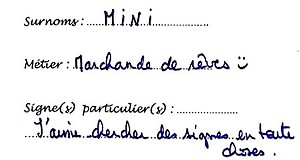 Surnoms : MiNi
Métier : Marchande de rêves :)
Signe(s) particulier(s) :
J'aime chercher des signes en toute
choses.